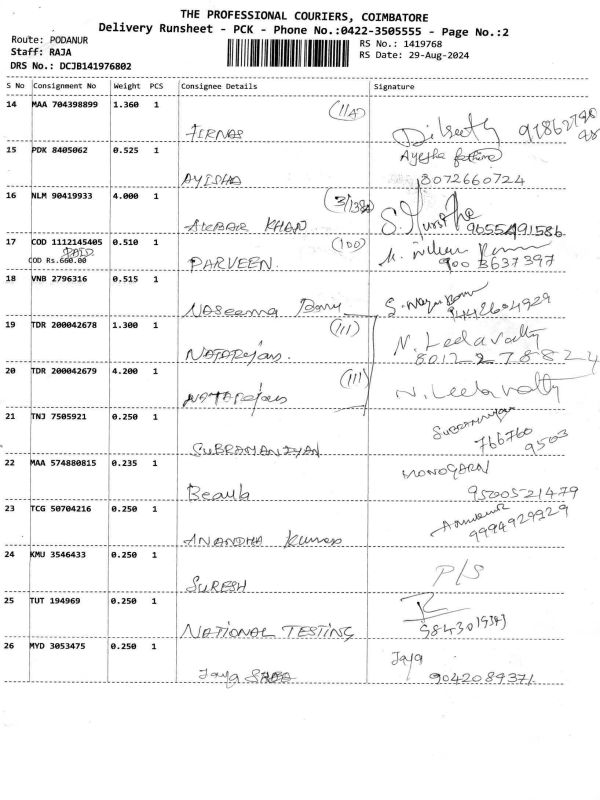 THE PROFESSIONAL COURIERS, COIMBATORE
Delivery Runsheet - PCK - Phone No.:0422-3505555 - Page No.:2
Route: PODANUR
Staff: RAJA
DRS No.: DCJB141976802
RS No.: 1419768
RS Date: 29-Aug-2024
S No Consignment No Weight PCS Consignee Details Signature
14 MAA 704398899 1.360 1 FIRNAS (11A)
15 PDK 8405062 0.525 1 AYISHA Ayesha 8072660724
16 NLM 90419933 4.000 1 AKBAR KHAN 9055491586
17 COD 1112145405 0.510 1 PARVEEN (100)
PAID
COD Rs.660.00
18 VNB 2796316 0.515 1 Naseema
19 TDR 200042678 1.300 1 NATARajan. (111) N. Leelavathy
8012278824
20 TDR 200042679 4.200 1 NATARajan (111) N. Leelavathy
21 TNJ 7505921 0.250 1 SUBRAMANIYAN 766760
9503
22 MAA 574880815 0.235 1 Beaula MONOGARN
9500521479
23 TCG 50704216 0.250 1 ANANDHA Kumar
9994929929
24 KMU 3546433 0.250 1 SURESH P/S
25 TUT 194969 0.250 1 NATIONAL TESTING
26 MYD 3053475 0.250 1 Jaya Jaya
9042089371